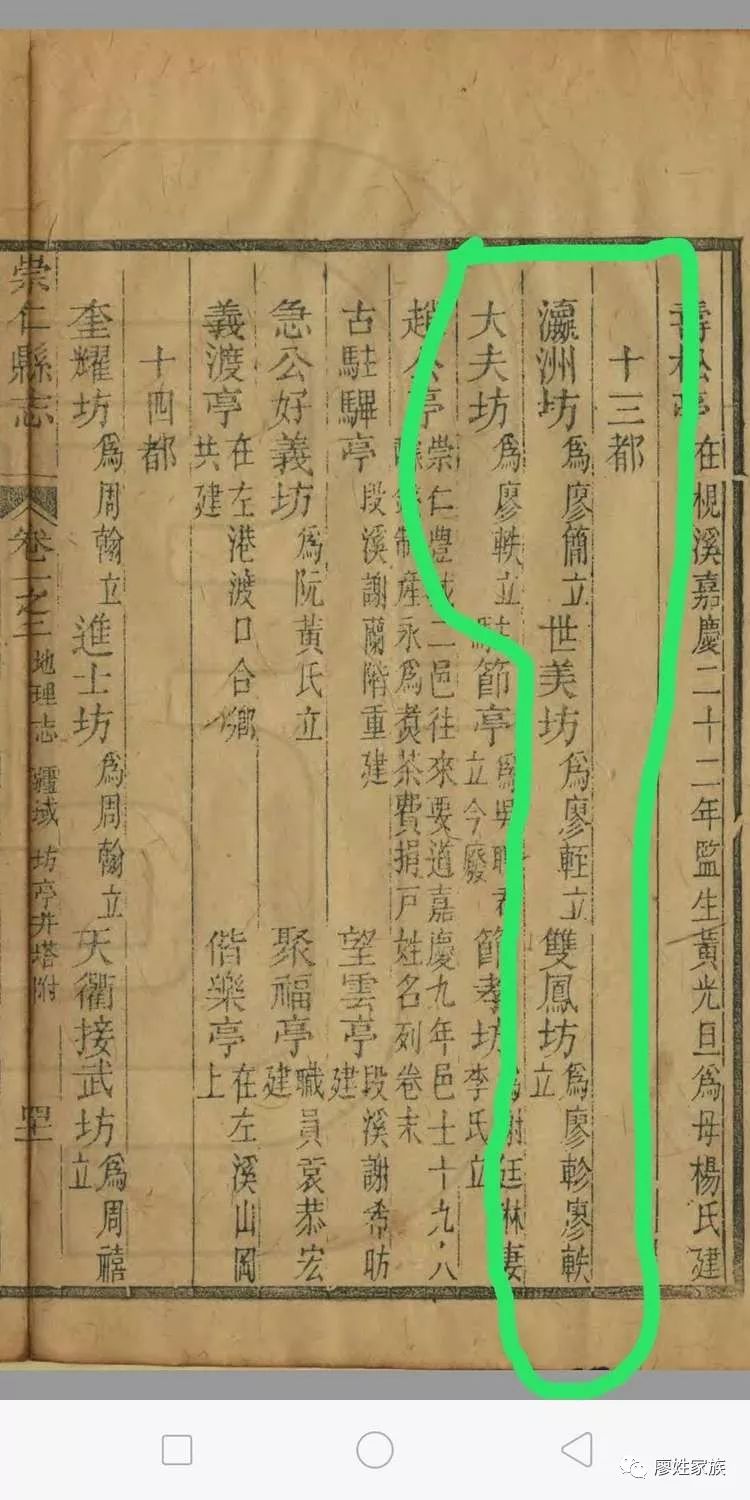 壽松亭 在梘溪嘉慶二十二年監生黃光旦為母楊氏建
十三都
瀛洲坊 為廖簡立 世美坊 為廖輊立 雙鳳坊 為廖軫廖軼立
大夫坊 為廖軼立 節亭 為吳聘君立今廢 節孝坊 為謝廷琳妻李氏立
趙公亭 崇仁豊城二邑往來要道嘉慶九年邑士十九八 制產永為煑茶費捐戸姓名列卷末
古駐驆亭 段溪謝蘭階重建 望雲亭 段溪謝希昉建
急公好義坊 為阮黃氏立 聚福亭 職員袁恭宏建
義渡亭 在左港渡口合鄉共建 偕樂亭 在左溪山岡上
十四都
奎耀坊 為周翰立 進士坊 為周翰立 天衢接武坊 為周禧立
崇仁縣志 卷一之二 地理志 疆域 坊亭井塔附 罡
廖姓家族